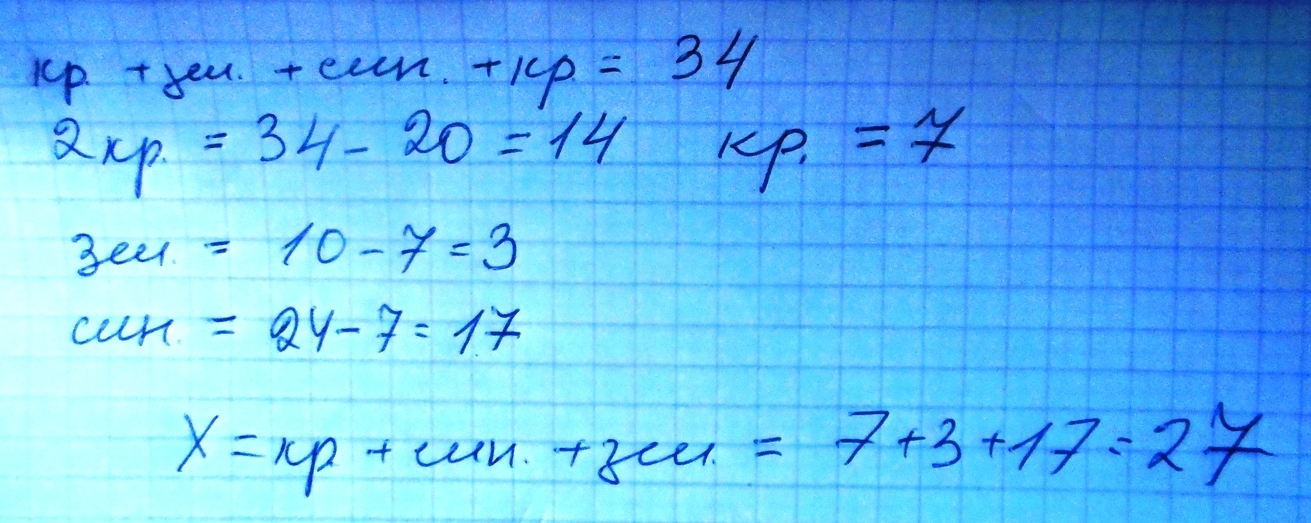 кр. + зел. + син. + кр. = 34
2кр. = 34 - 20 = 14 кр. = 7
зел. = 10 - 7 = 3
син. = 24 - 7 = 17
X = кр + син. + зел. = 7 + 3 + 17 = 27